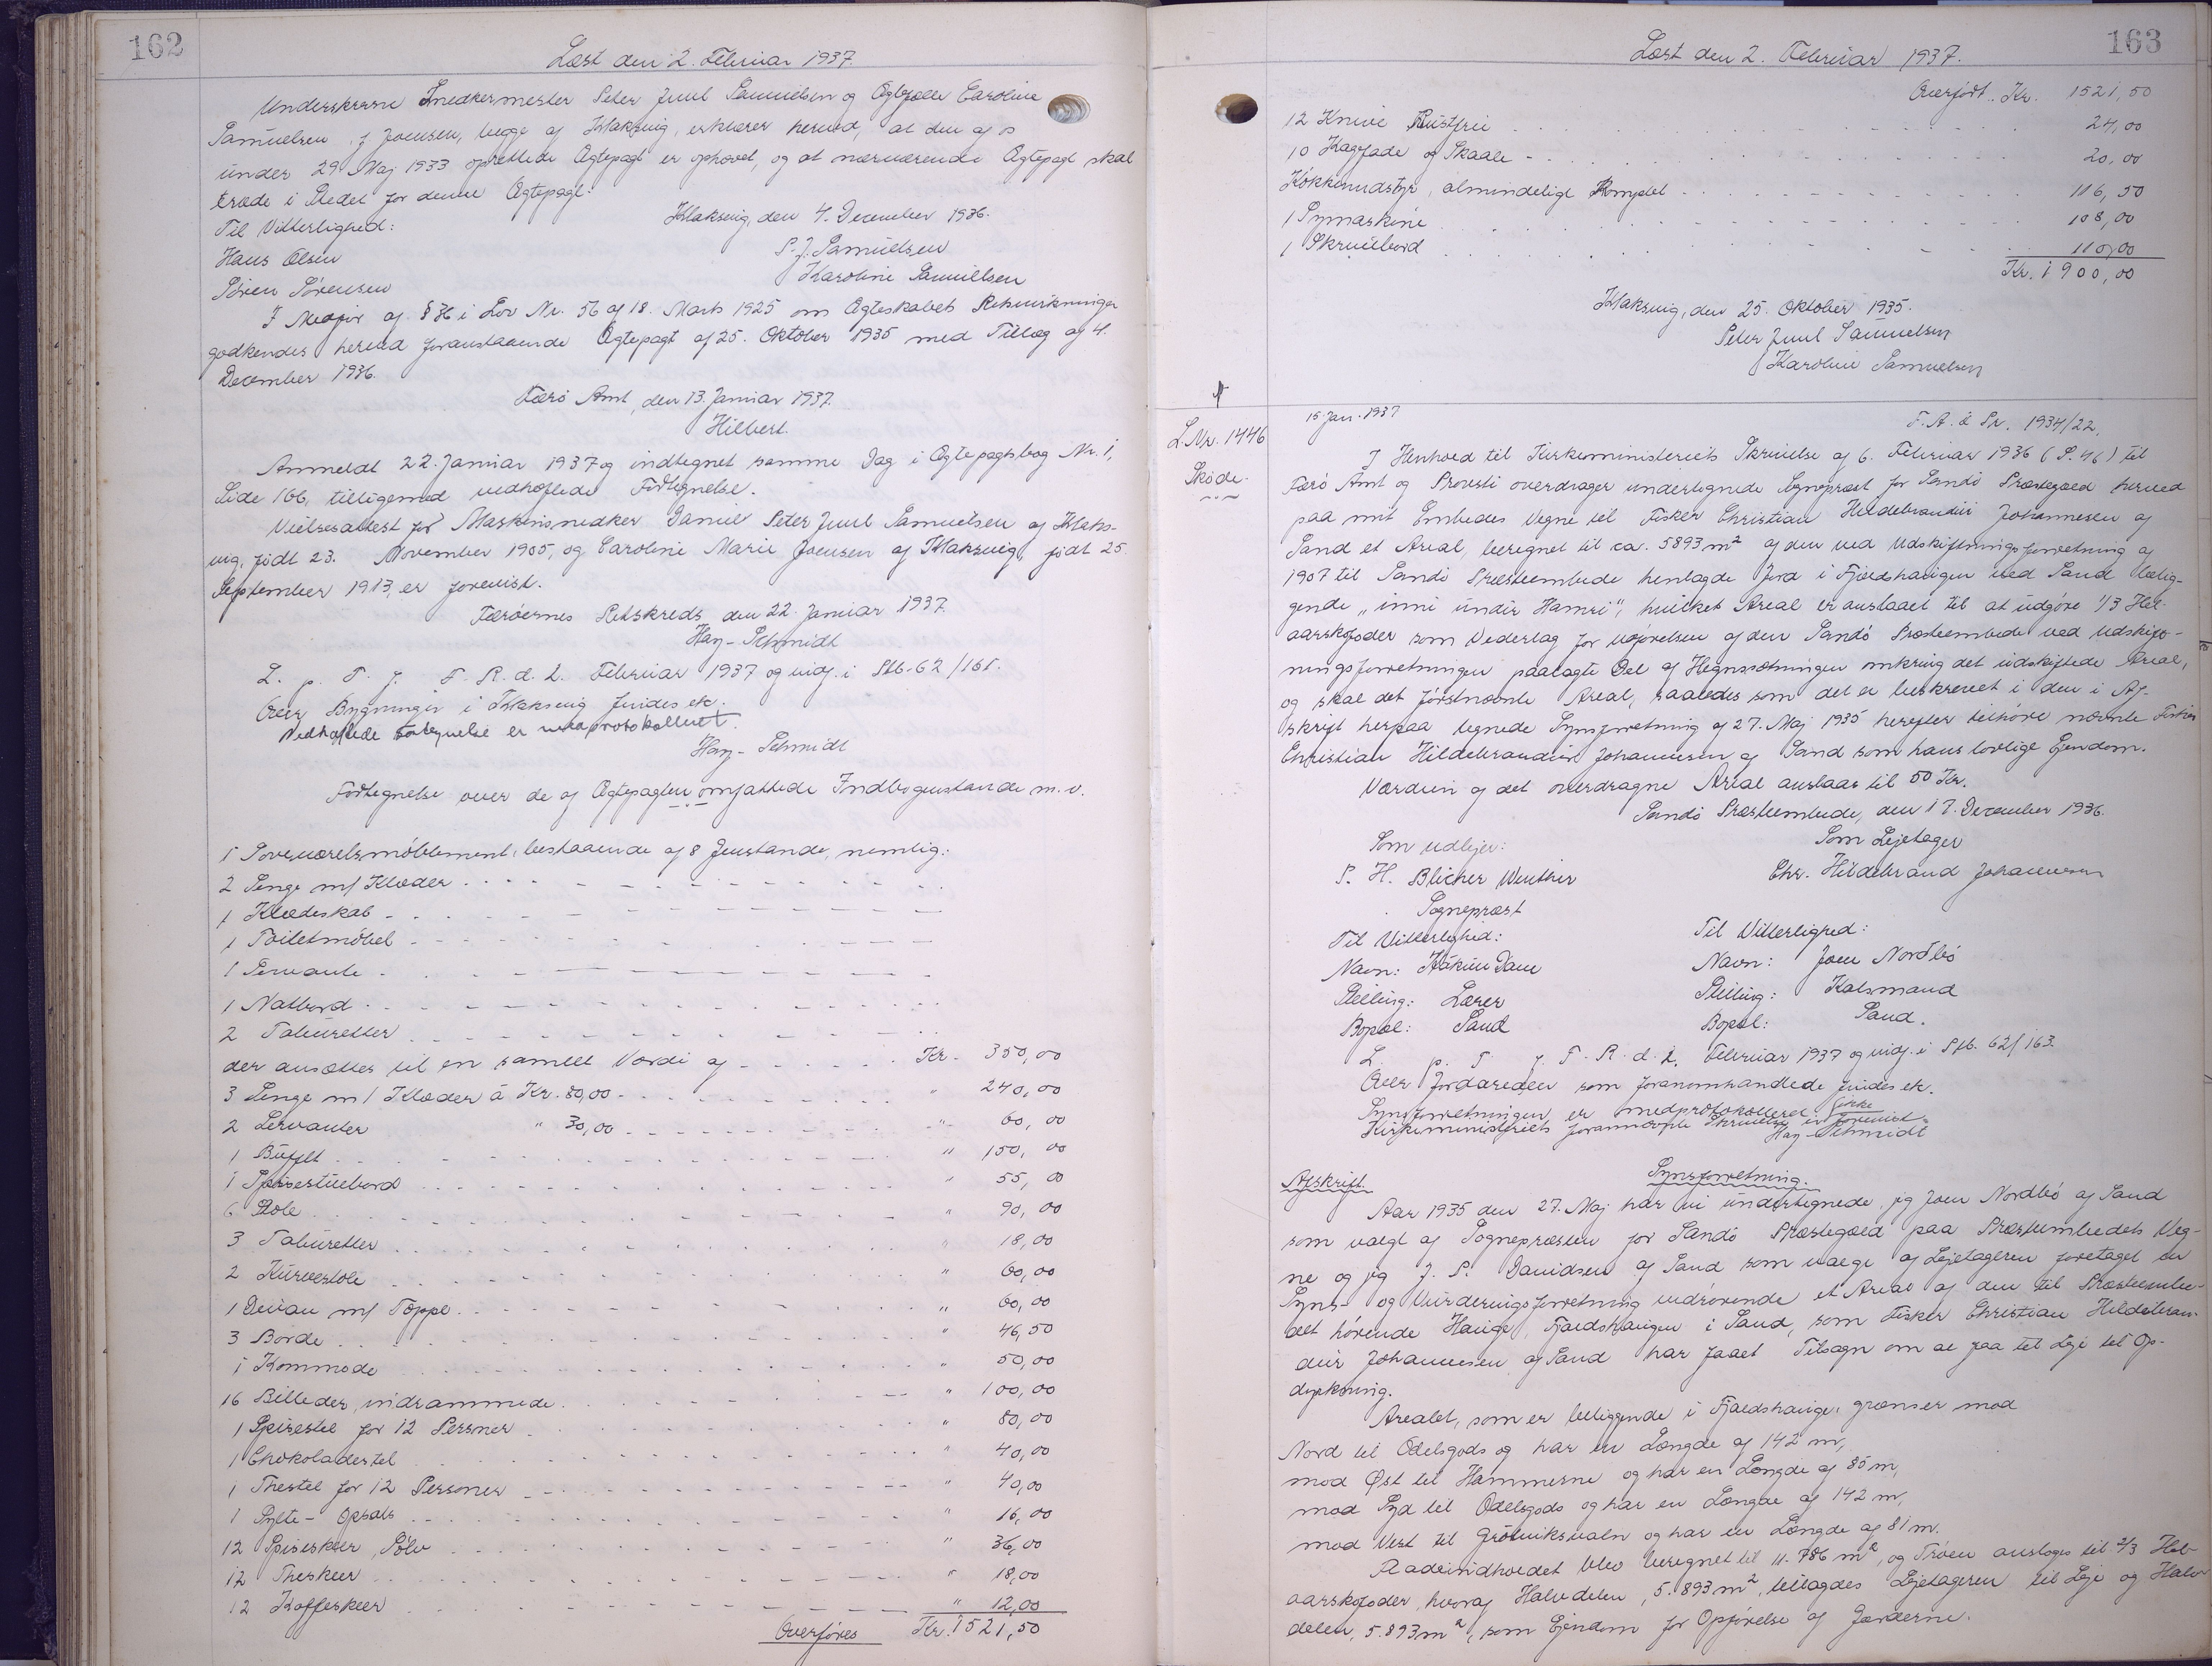 162
Læst den 2. Februar 1937.
Underskrevne Snedkermester Peter Juul Samuelsen og Ægtefælle Caroline
Samuelsen f. Joensen, begge af Klaksvig, erklærer herved, at den af os
under 29. Maj 1933 oprettede Ægtepagt er ophævet, og at nærværende Ægtepagt skal
træde i Stedet for denne Ægtepagt.
Klaksvig, den 4. December 1936.
Til Vitterlighed:
P. J. Samuelsen
Hans Olsen
Karoline Samuelsen
Sören Sörensen
I Medför af § 36 i Lov Nr. 56 af 18. Marts 1925 om Ægteskabets Retsvirkninger
godkendes herved foranstaaende Ægtepagt af 25. Oktober 1935 med Tillæg af 4.
December 1936.
Færö Amt, den 13. Januar 1937.
Hilbert.
Anmeldt 22. Januar 1937 og indtegnet samme Dag i Ægtepagtsbog Nr. 1,
Side 166, tilligemed vedhæftede Fortegnelse.
Vielsesattest for Maskinsnedker Daniel Peter Juul Samuelsen af Klaks-
vig, födt 23. November 1905, og Caroline Marie Joensen af Klaksvig, födt 25.
September 1913, er forevist.
Færöernes Retskreds, den 22. Januar 1937.
Hay-Schmidt
L. p. T. f. F. R. d. 2. Februar 1937 og vidf. i Skb. 62/161.
Over Bygninger i Klaksvig findes ek.
Vedhæftede Fortegnelse er medprotokolleret.
Hay-Schmidt
Fortegnelse over de af Ægtepagten omfattede Indbogenstande m.v.
1 Soveværelsmöblement, bestaaende af 8 Genstande, nemlig:
2 Senge m/ Klæder
1 Klædeskab
1 Toiletmöbel
1 Servante
1 Natbord
2 Taburetter
der ansættes til en samlet Værdi af Kr. 350,00
3 Senge m/ Klæder á Kr. 80,00 " 240,00
2 Servanter " 30,00 " 60,00
1 Buffet " 150,00
1 Spisestuebord " 55,00
6 Stole " 90,00
3 Taburetter " 18,00
2 Kurvestole " 60,00
1 Divan m/ Tæppe " 60,00
3 Borde " 46,50
1 Kommode " 50,00
16 Billeder, indrammede " 100,00
1 Spisestel for 12 Personer " 80,00
1 Chokoladestel " 40,00
1 Thestel for 12 Personer " 40,00
1 Sylte-Opsats " 16,00
12 Spiseskeer, Sölv " 36,00
12 Theskeer " 18,00
12 Kaffeskeer " 12,00
Overföres Kr. 1521,50
163
Læst den 2. Februar 1937.
Overfört. Kr. 1521,50
12 Knive Rustfrie 24,00
10 Kagefade og Skaale 20,00
Kökkenudstyr, almindeligt komplet 116,50
1 Symaskine 108,00
1 Skrivebord 110,00
Kr. 1900,00
Klaksvig, den 25. Oktober 1935.
Peter Juul Samuelsen
Karoline Samuelsen
L. Nr. 1446
Sköde.
15. Jan. 1937
F. A. & Pr. 1934/22.
I Henhold til Kirkeministeriets Skrivelse af 6. Februar 1936 (P. 46) til
Færö Amt og Provsti overdrager undertegnede Sognepræst for Sandö Præstegæld herved
paa mit Embedes Vegne til Fisker Christian Hildebrandur Johannesen af
Sand et Areal, beregnet til ca. 5893 m² af den ved Udskiftningsforretning af
1907 til Sandö Præsteembede henlagde Jord i Fjældshaugen ved Sand belig-
gende „inni undir Hamri", hvilket Areal er anslaaet til at udgöre 1/3 Hel-
aarskofoder som Vederlag for Udförelsen af den Sandö Præsteembede ved Udskift-
ningsforretningen paalagte Del af Hegnssætningen omkring det udskiftede Areal,
og skal det förstnævnte Areal, saaledes som det er beskrevet i den i Af-
skrift herpaa tegnede Synsforretning af 27. Maj 1935 herefter tilhöre nævnte Fisker
Christian Hildebrandur Johannesen af Sand som hans lovlige Ejendom.
Værdien af det overdragne Areal anslaas til 50 Kr.
Sandö Præsteembede, den 17. December 1936.
Som Udlejer: Som Lejetager
P. H. Blicher Winther Chr. Hildebrand Johannesen
Sognepræst
Til Vitterlighed: Til Vitterlighed:
Navn: Hákun Dam Navn: Joen Nordbö
Stilling: Lærer Stilling: Kalsmand
Bopæl: Sand Bopæl: Sand.
L. p. T. f. F. R. d. 2. Februar 1937 og vidf. i Skb. 62/163.
Over Jordarealer som foranomhandlede findes ek.
Synsforretningen er medprotokolleret.
Kirkeministeriets forannævnte Skrivelse er ikke forevist.
Hay-Schmidt
Afskrift. Synsforretning.
Aar 1935 den 27. Maj har vi undertegnede, jeg Joen Nordbö af Sand
som valgt af Sognepræsten for Sandö Præstegæld paa Præsteembedets Veg-
ne og jeg J. P. Davidsen af Sand som valgt af Lejetageren foretaget en
Syns- og Vurderingsforretning vedrörende et Areal af den til Præsteembe-
det hörende Hauge, Fjældshaugen i Sand, som Fisker Christian Hildebran-
dur Johannesen af Sand har faaet Tilsagn om at faa til Leje til Op-
dyrkning.
Arealet, som er beliggende i Fjældshauge, grænser mod
Nord til Odelsgods og har en Længde af 142 m,
mod Øst til Hammerne og har en Længde af 85 m,
mod Syd til Odelsgods og har en Længde af 142 m,
mod Vest til Grótviksvatn og har en Længde af 81 m.
Fladeindholdet blev beregnet til 11.786 m², og Tröen ansloges til 2/3 Hel-
aarskofoder, hvoraf Halvdelen, 5.893 m², tillagdes Lejetageren til Leje og Halv-
delen, 5.893 m², som Ejendom for Opförelse af Gærderne.